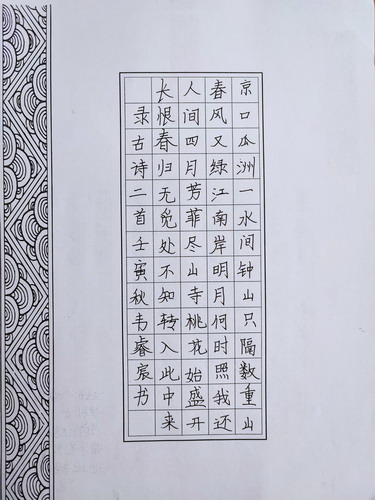 京口瓜洲一水间钟山只隔数重山
春风又绿江南岸明月何时照我还
人间四月芳菲尽山寺桃花始盛开
长恨春归无觅处不知转入此中来
录古诗二首壬寅秋韦睿宸书